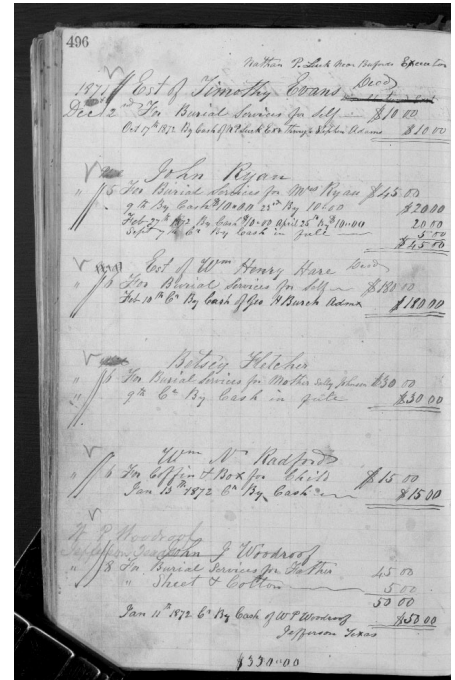 496
Nathan P. Luck Near Buford Executor
1871 Est of Timothy Evans Decd
Dec 2nd For Burial Services for Self $10 00
Oct 17th 1872 By Cash of N P Luck Exr $10 00
John Ryan
" 5 For Burial Services for Mrs Ryan $45 00
9th By Cash $10 00 23d By 10 00 $20 00
Feb 27th 1872 By Cash $10 00 April 26th By $10 00 20 00
Sept 7th Cr By Cash in full 5 00
$45 00
Est of Wm Henry Hare Decd
" 6 For Burial Services for Self $180 00
Feb 10th Cr By Cash of Geo H Burch Admr $180 00
Betsey Fletcher
" 6 For Burial Services for Mother Sally Johnson $30 00
" 9th Cr By Cash in full $30 00
Wm N. Radford
" 6 For Coffin & Box for Child $15 00
Jan 15th 1872 Cr By Cash $15 00
W P Woodroof
Jefferson Texas
John J Woodroof
" 8 For Burial Services for Father 45 00
" Sheet & Cotton 5 00
50 00
Jan 11th 1872 Cr By Cash of W P Woodroof $50 00
Jefferson Texas
$330.00